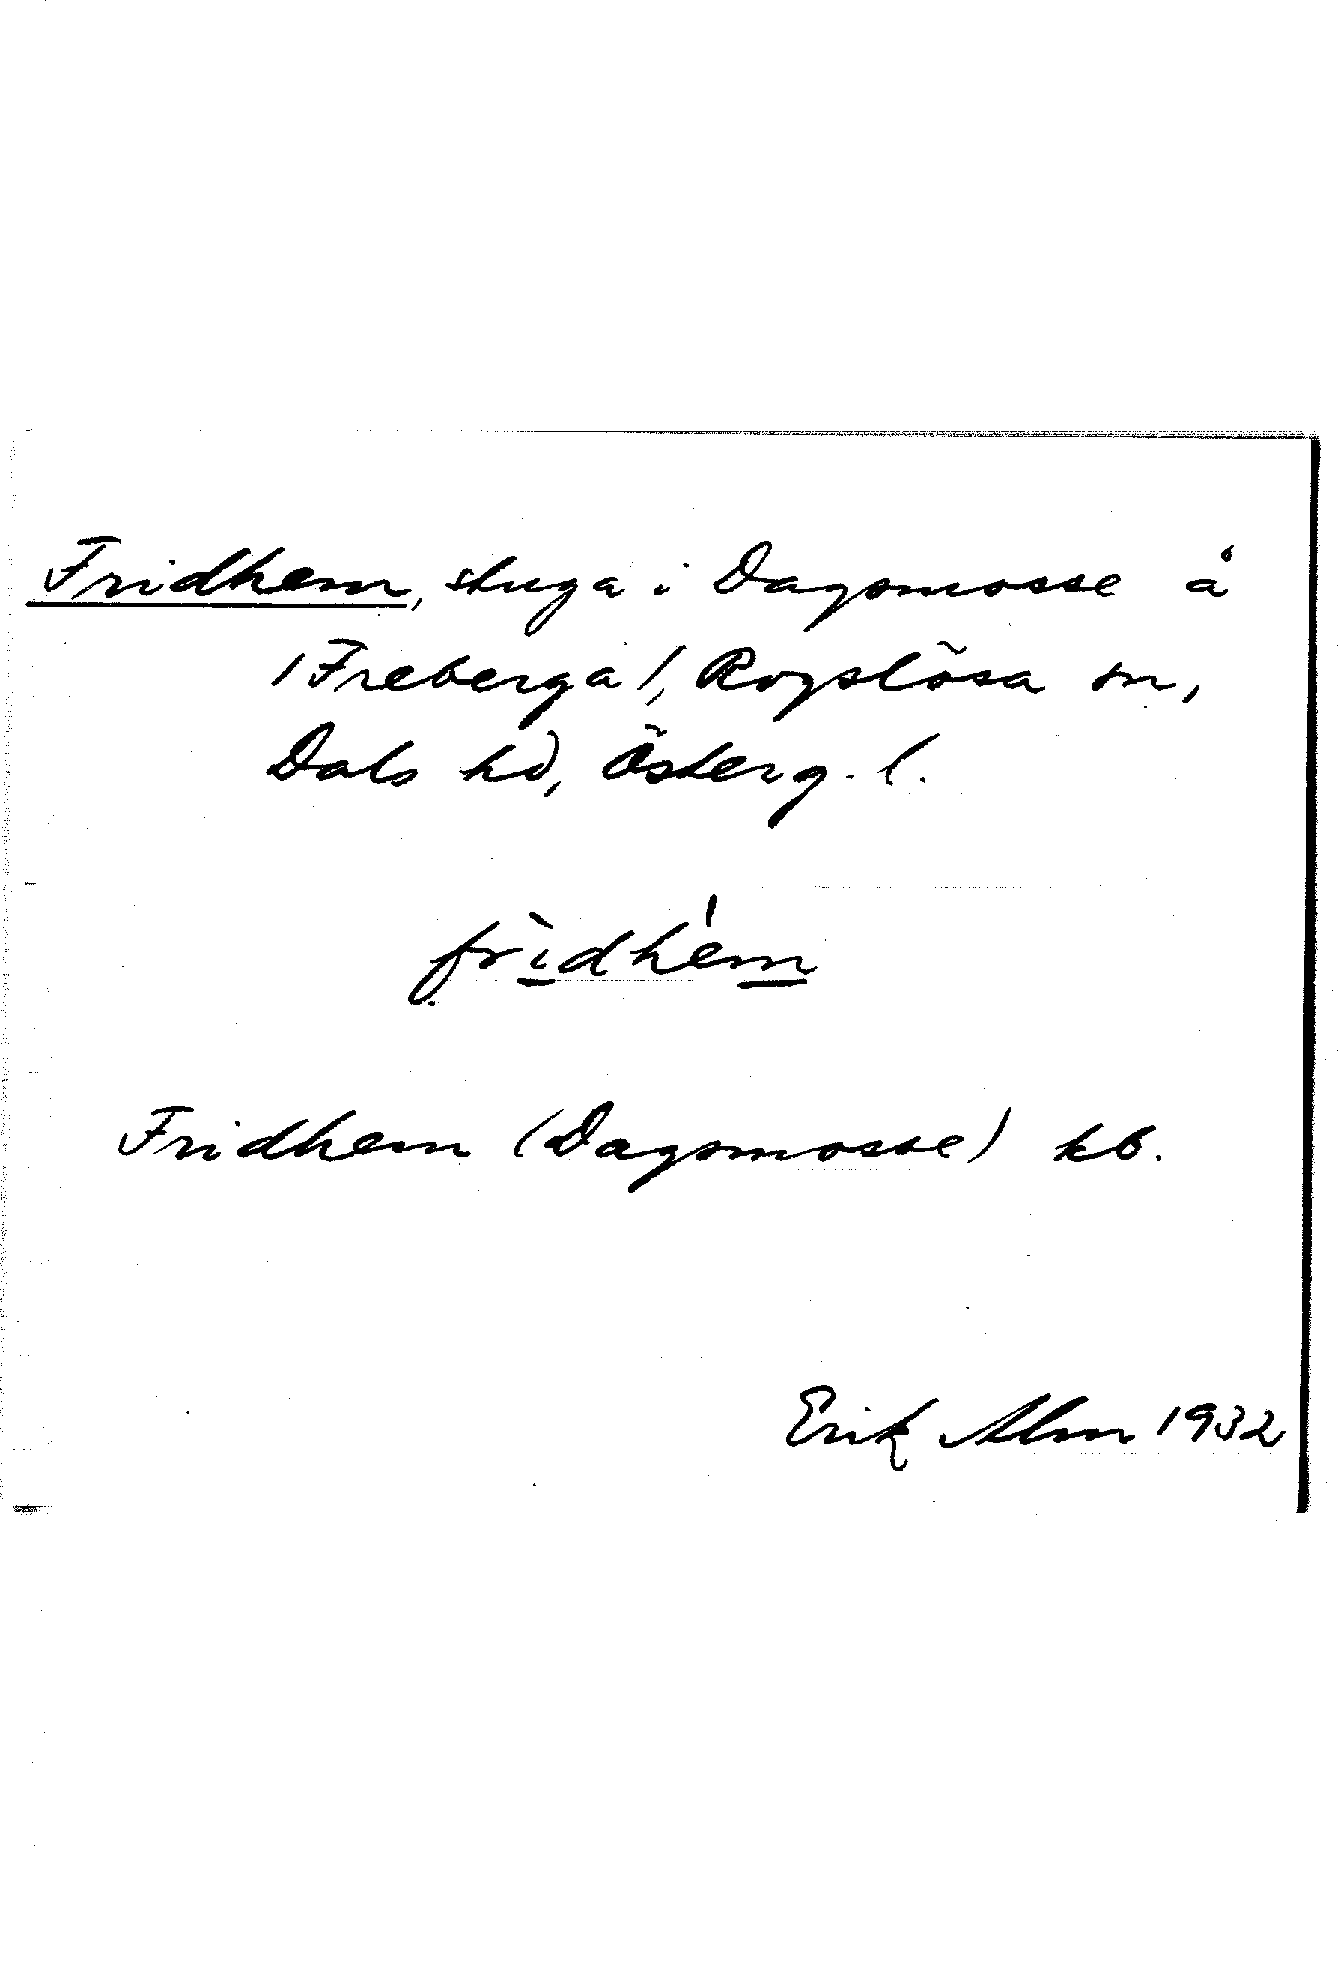 Fridhem, stuga i Dagsmosse å
/Freberga/, Rogslösa sn,
Dals hd, Österg. l.
frìdhém
Fridhem (Dagsmosse) kb.
Erik Alm 1932